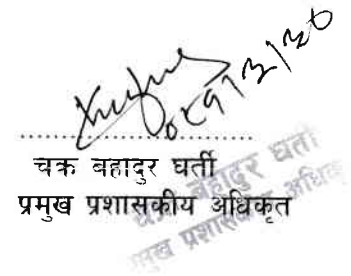 ०८१/३/२०
चक्र बहादुर घर्ती
प्रमुख प्रशासकीय अधिकृत
चक्र बहादुर घर्ती
प्रमुख प्रशासकीय अधिकृत